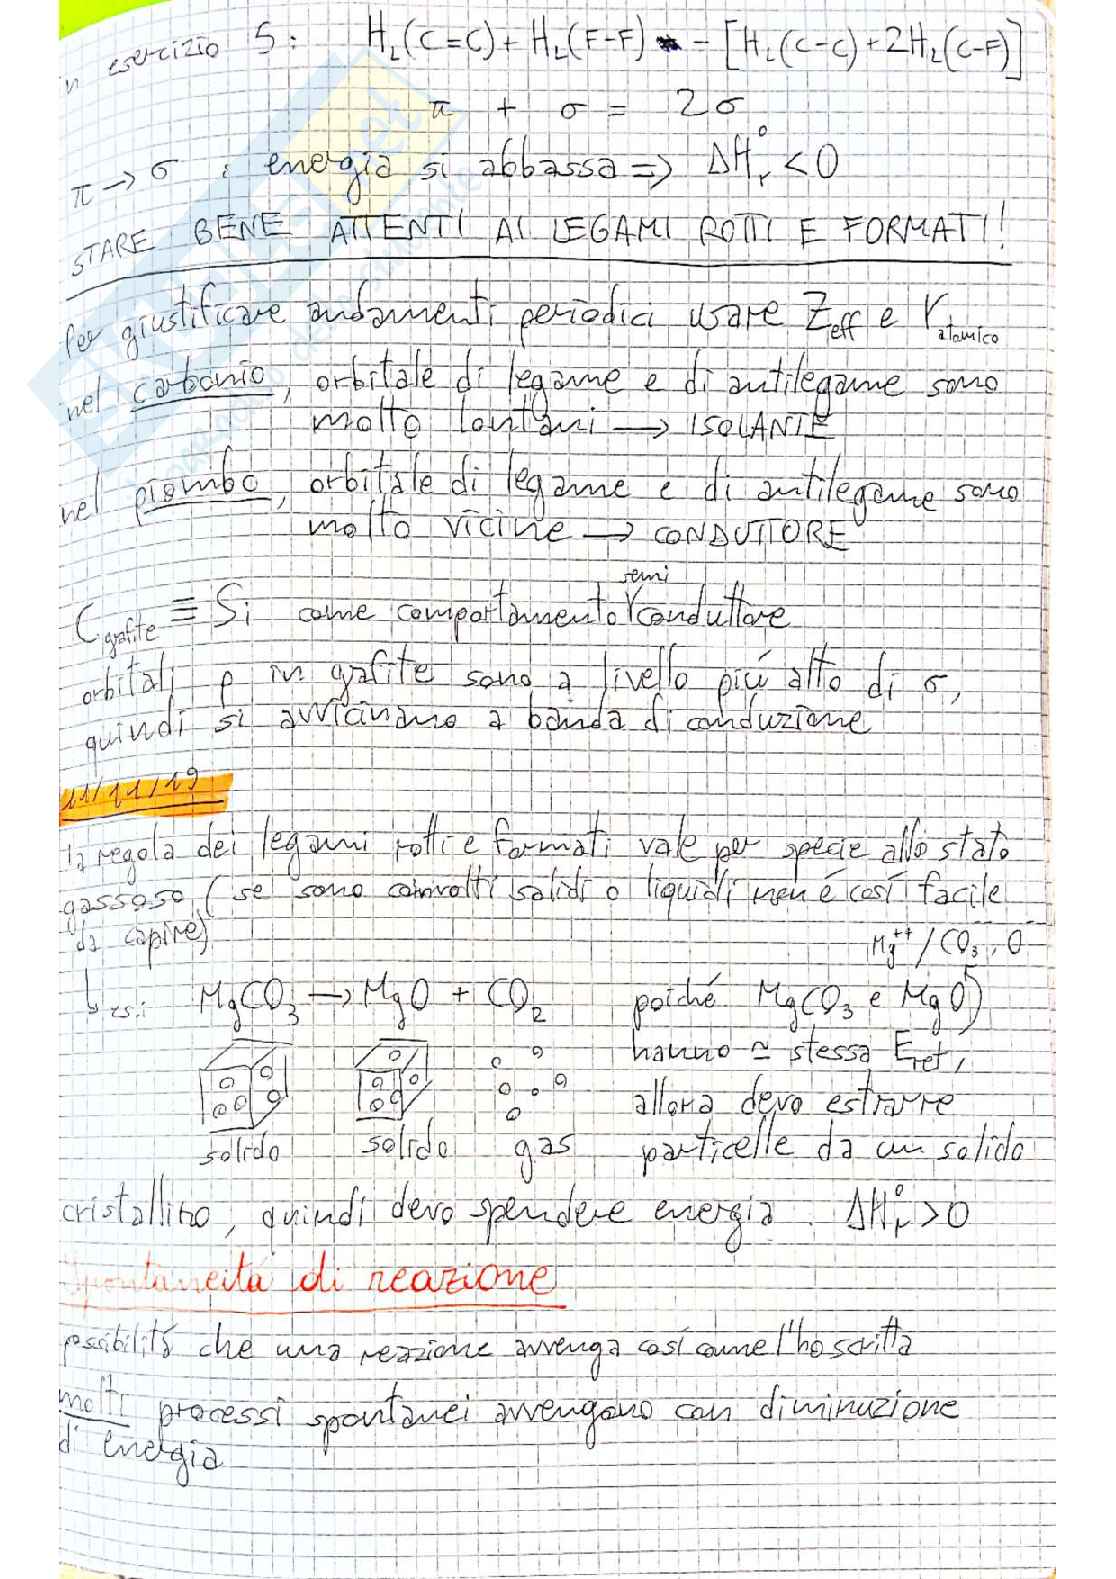 in esercizio 5: H_L(C=C) + H_L(F-F) - [H_L(C-C) + 2H_L(C-F)]
π + σ = 2σ
π → σ : energia si abbassa ⇒ ΔH°r < 0
STARE BENE ATTENTI AI LEGAMI ROTTI E FORMATI!
Per giustificare andamenti periodici usare Zeff e r atomico
nel carbonio, orbitale di legame e di antilegame sono
molto lontani → ISOLANTE
nel piombo, orbitale di legame e di antilegame sono
molto vicine → CONDUTTORE
C grafite ≡ Si come comportamento semiconduttore
orbitali p in grafite sono a livello più alto di σ,
quindi si avvicinano a banda di conduzione
11/11/19
la regola dei legami rotti e formati vale per specie allo stato
gassoso (se sono coinvolti solidi o liquidi non é così facile
da capire)
Mg⁺⁺/CO₃⁻⁻, O⁻⁻
↳ es.: MgCO₃ → MgO + CO₂ poiché MgCO₃ e MgO
hanno ≃ stessa Eret,
allora devo estrarre
solido solido gas particelle da un solido
cristallino, quindi devo spendere energia: ΔH°r > 0
Spontaneità di reazione
possibilità che una reazione avvenga così come l'ho scritta
molti processi spontanei avvengono con diminuzione
di energia